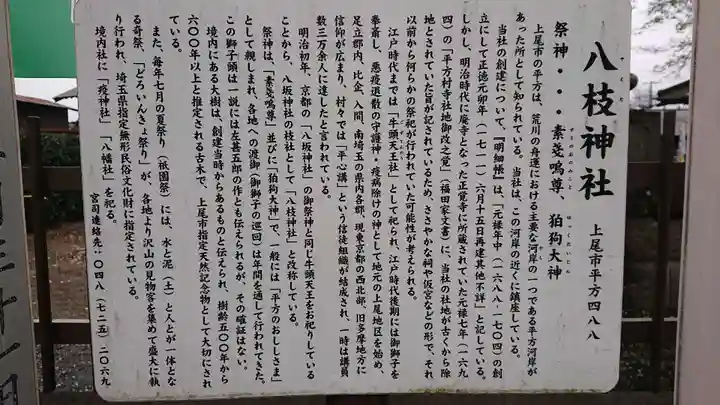 八枝神社
やえだ
上尾市平方四八八
祭神・・・素戔嗚尊、狛狗大神
すさのおのみこと
上尾市の平方は、荒川の舟運における主要な河岸の一つである平方河岸が
あった所として知られている。当社は、この河岸の近くに鎮座している。
当社の創建について、『明細帳』は、「元禄年中(一六八八-一七〇四)の創
立にして正徳元卯年(一七一一)六月十五日再建其他不詳」と記している。
しかし、明治時代に廃寺となった正覚寺に所蔵されていた元禄七年(一六九
四)の「平方村寺社地御改之覚」(福田家文書)に、当社の社地が古くから除
地とされていた旨が記されているため、ささやかな祠や仮宮などの形で、それ
以前から何らかの祭祀が行われていた可能性が考えられる。
江戸時代までは「牛頭天王社」として祀られ、江戸時代後期には御獅子を
奉斎し、悪疫退散の守護神・疫病除けの神として地元の上尾地区を始め、
足立郡内、比企、入間、南埼玉の県内各郡、現東京都の西北部、旧多摩地方に
信仰が広まり、村々では「平心講」という信徒組織が結成され、一時は講員
数三万余人に達したと言われている。
明治初年、京都の「八坂神社」の御祭神と同じ牛頭天王をお祀りしている
ことから、八坂神社の枝社として「八枝神社」と改称している。
祭神は、「素戔嗚尊」並びに「狛狗大神」で、一般には「平方のおししさま」
として親しまれ、各地への渡御(御獅子の巡回)は年間を通して行われてきた。
この獅子頭は一説には左甚五郎の作とも伝えられるが、その確証はない。
境内にある大樹は、創建当時からあるものと伝えられ、樹齢五〇〇年から
六〇〇年以上と推定される古木で、上尾市指定天然記念物として大切にされ
ている。
また、毎年七月の夏祭り(祇園祭)には、水と泥(土)と人とが一体とな
る奇祭、「どろいんきょ祭り」が、各地より沢山の見物客を集めて盛大に執
り行われ、埼玉県指定無形民俗文化財に指定されている。
境内社に「疫神社」「八幡社」を祀る。
宮司連絡先:〇四八(七二五)二〇六九